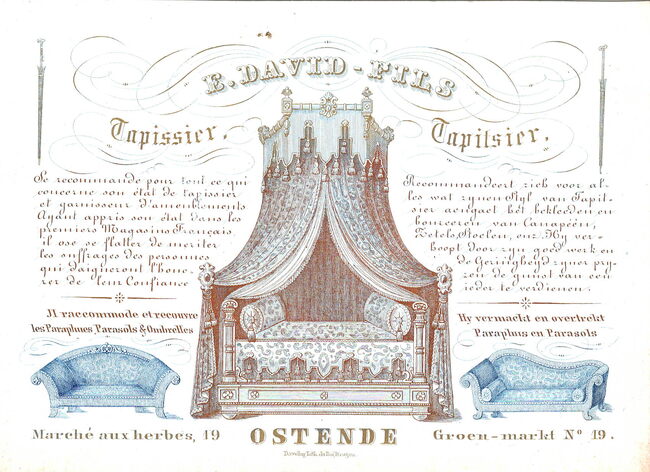 E. DAVID - FILS
Tapissier.
Se recommande pour tout ce qui
concerne son état de tapissier
et garnisseur d'ameublements
Ayant appris son état dans les
premiers Magasins Français
il ose se flatter de mériter
les suffrages des personnes
qui daigneront l'hono_
rer de leur Confiance
Il raccommode et recouvre
les Parapluies, Parasols & Ombrelles
Tapitsier.
Recommandeert zich voor al_
les wat zynen Styl van Tapit_
sier aengaet het bekleeden en
bourreeren van Canapeën,
Zetels, Stoelen, enz. Hy ver_
hoopt door zyn goed werk en
de Geringheyd zyner pry_
zen de gunst van een
ieder te verdienen.
Hy vermackt en overtrekt
Paraplus en Parasols
Marché aux herbes, 19 OSTENDE Groen-markt Nº 19.
Daveluy Lith. du Roi, Bruges.